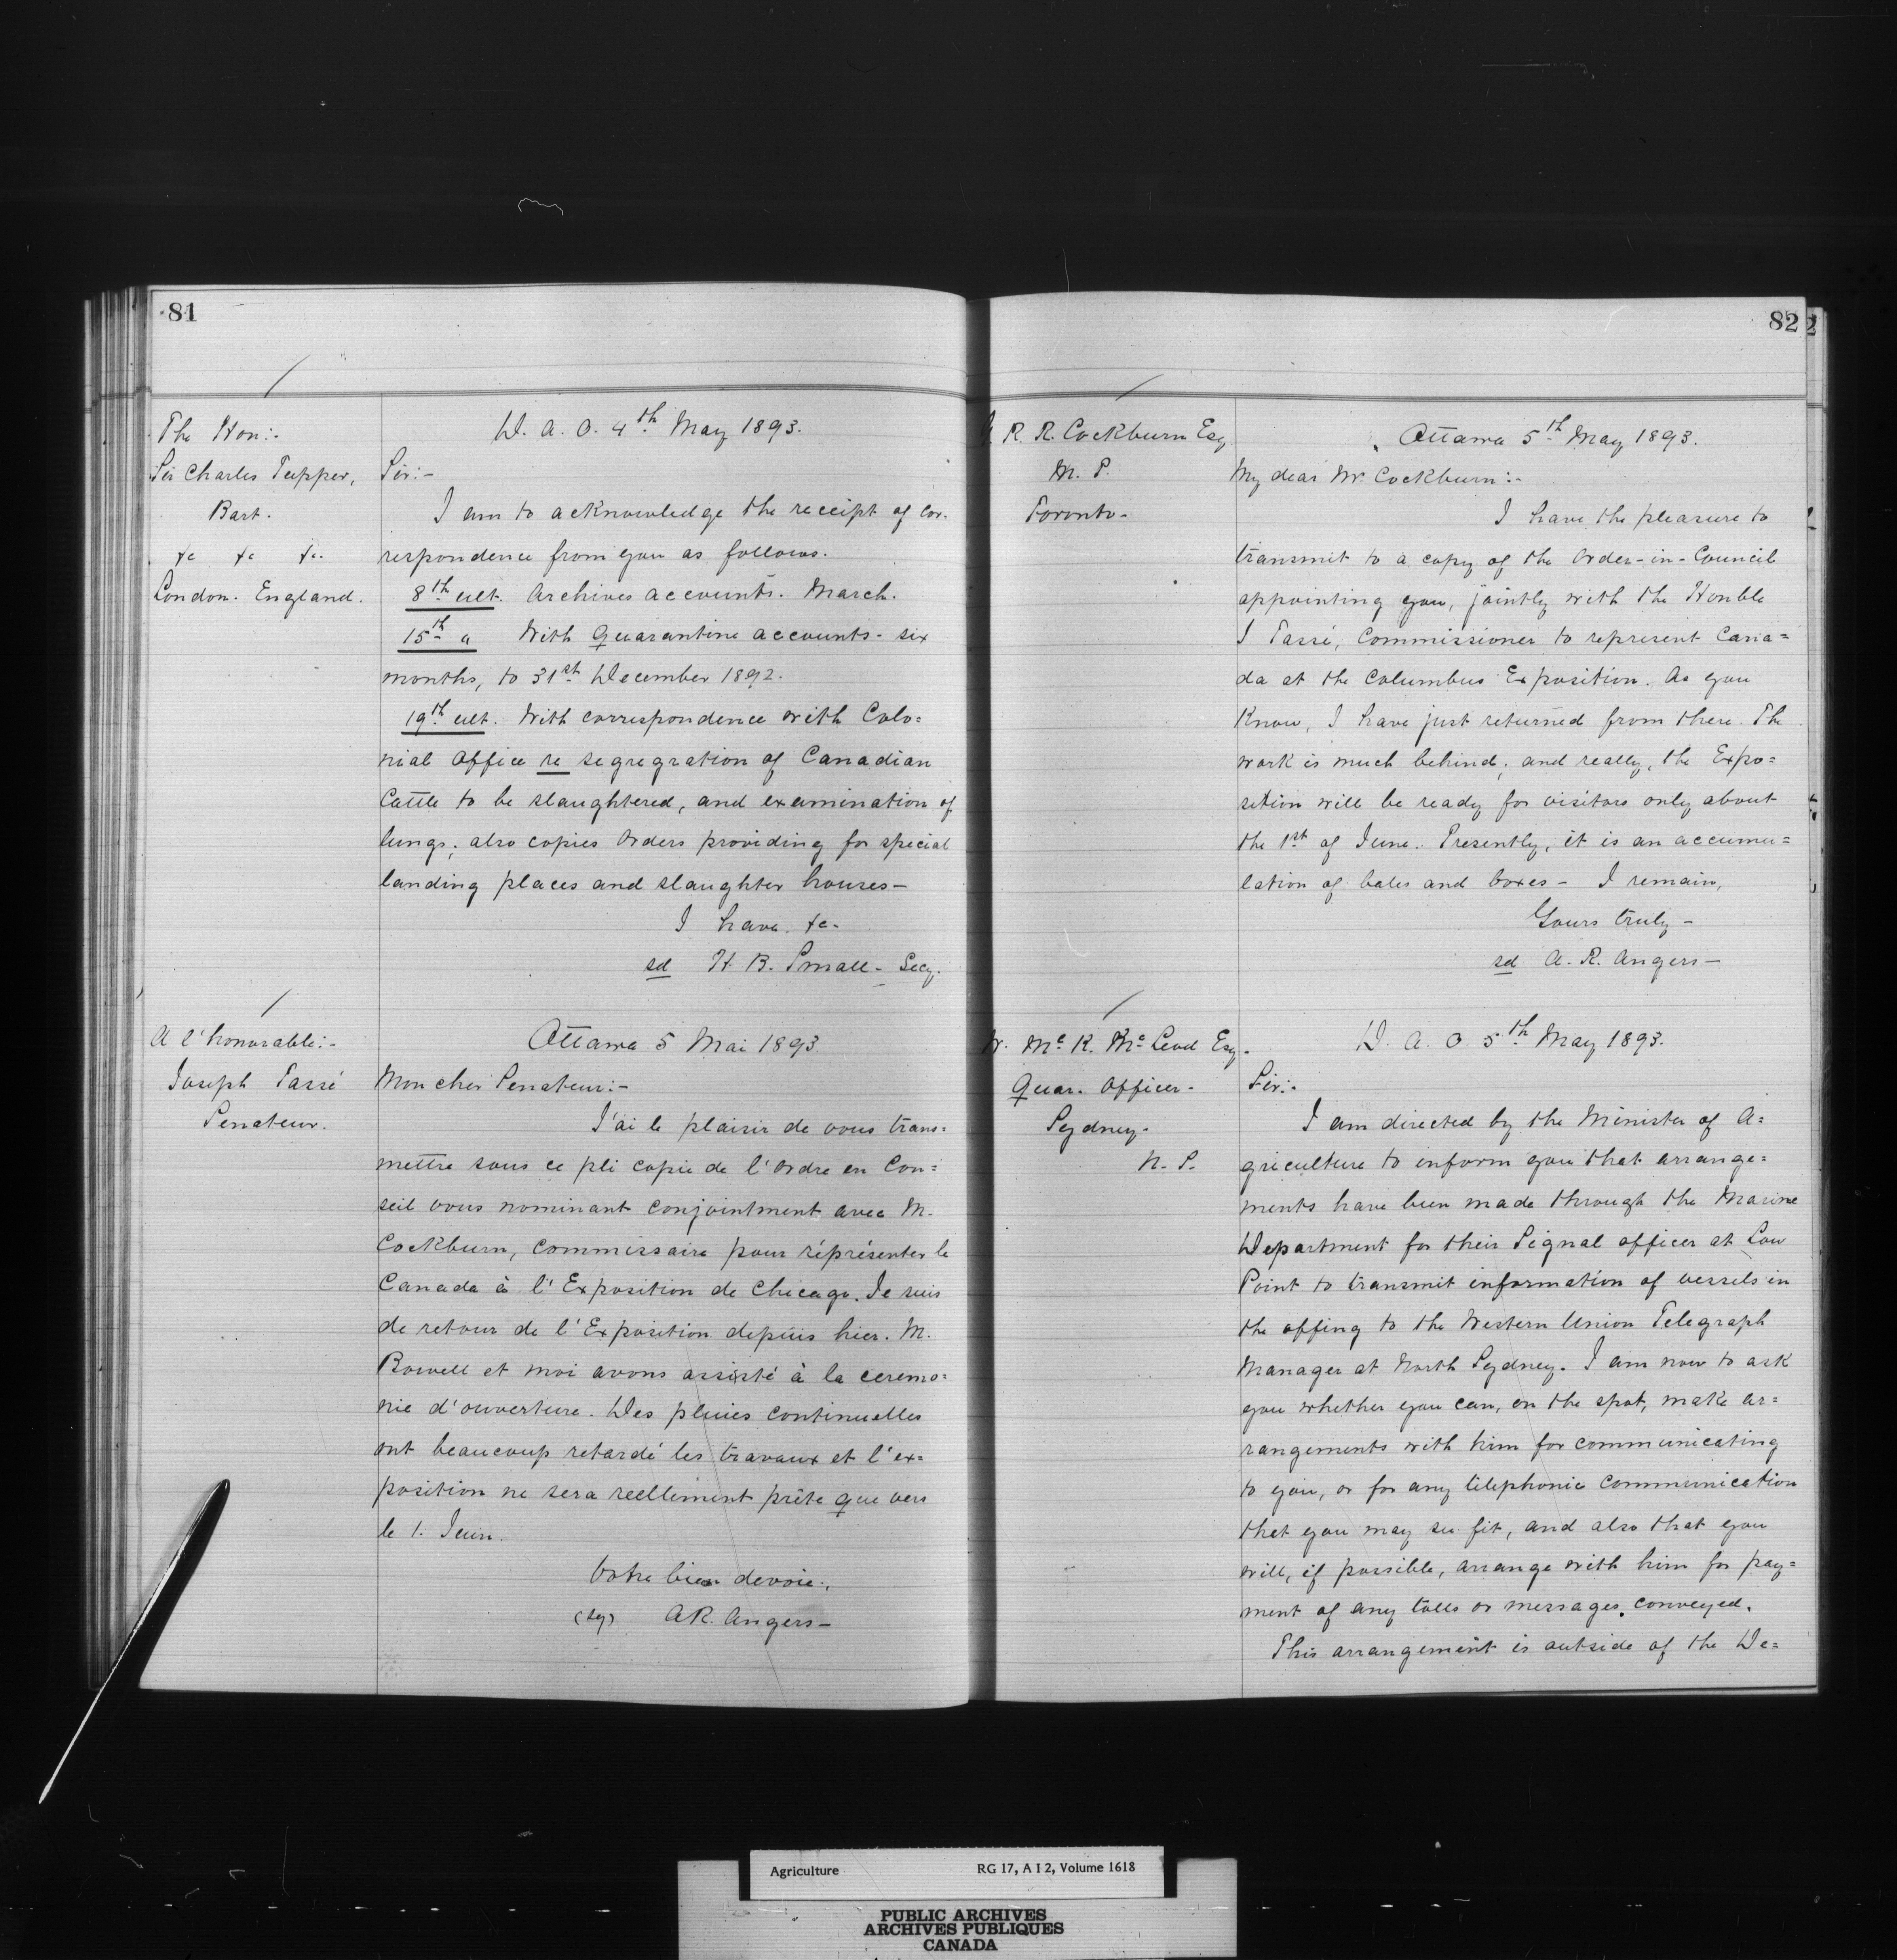 81
The Hon:-
Sir Charles Tupper,
Bart.
&c &c &c.
London. England.
D. A. O. 4th May 1893.
Sir:-
I am to acknowledge the receipt of cor-
respondence from you as follows.
8th ult. Archives accounts. March.
15th " With Quarantine accounts - six
months, to 31st December 1892.
19th ult. With correspondence with Colo=
nial Office re segregration of Canadian
Cattle to be slaughtered, and examination of
lungs; also copies Orders providing for special
landing places and slaughter houses -
I have &c-
sd H. B. Small - Secy.
A l'honorable:-
Joseph Tassé
Senateur.
Ottawa 5 Mai 1893
Mon cher Senateur:-
J'ai le plaisir de vous trans=
mettre sous ce pli copie de l'Ordre en Con=
seil vous nominant conjointment avec M.
Cockburn, Commissaire pour réprésenter le
Canada à l'Exposition de Chicago. Je suis
de retour de l'Exposition depuis hier. M.
Bowell et moi avons assisté à la ceremo=
nie d'ouverture. Des pluies continuelles
ont beaucoup retardé les travaux et l'ex=
position ne sera reellement prête que vers
le 1. Juin.
Votre bien devoie,
(sg) A R. Angers -
82
R. R. Cockburn Esq
M. P.
Toronto -
Ottawa 5th May 1893.
My dear Mr Cockburn:-
I have the pleasure to
transmit to a copy of the Order-in-Council
appointing you, jointly with the Honble
J Tassé, Commissioner to represent Cana=
da at the Columbus Exposition. As you
Know, I have just returned from there. The
work is much behind; and really, the Expo=
sition will be ready for visitors only about
the 1st of June. Presently, it is an accumu=
lation of bales and boxes - I remain,
Yours truly -
sd A. R. Angers -
W. Mc K. McLeod Esq.
Quar. Officer -
Sydney -
N. S.
D. A. O 5th May 1893.
Sir:-
I am directed by the Minister of A=
griculture to inform you that arrange=
ments have been made through the Marine
Department for their Signal officer at Low
Point to transmit information of vessels in
the offing to the Western Union Telegraph
Manager at North Sydney. I am now to ask
you whether you can, on the spot, make ar=
rangements with him for communicating
to you, or for any telephonic communication
that you may see fit, and also that you
will, if possible, arrange with him for pay=
ment of any tolls or messages, conveyed.
This arrangement is outside of the De=
Agriculture RG 17, A I 2, Volume 1618
PUBLIC ARCHIVES
ARCHIVES PUBLIQUES
CANADA